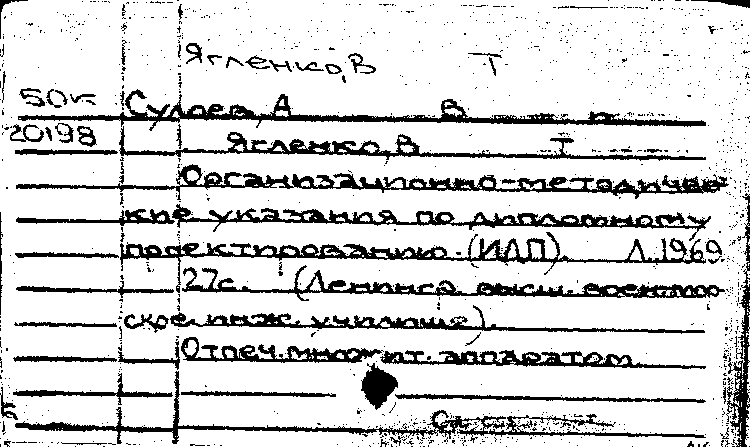 Ягленко, В Т
50к Сулоев, А В п
20198 Ягленко, В Т
Организационно-методичес-
кие указания по дипломному
проектированию. (ИДП). Л. 1969
27с. (Ленингр. высш. военмор-
ское инж. училище).
Отпеч. множит. аппаратом